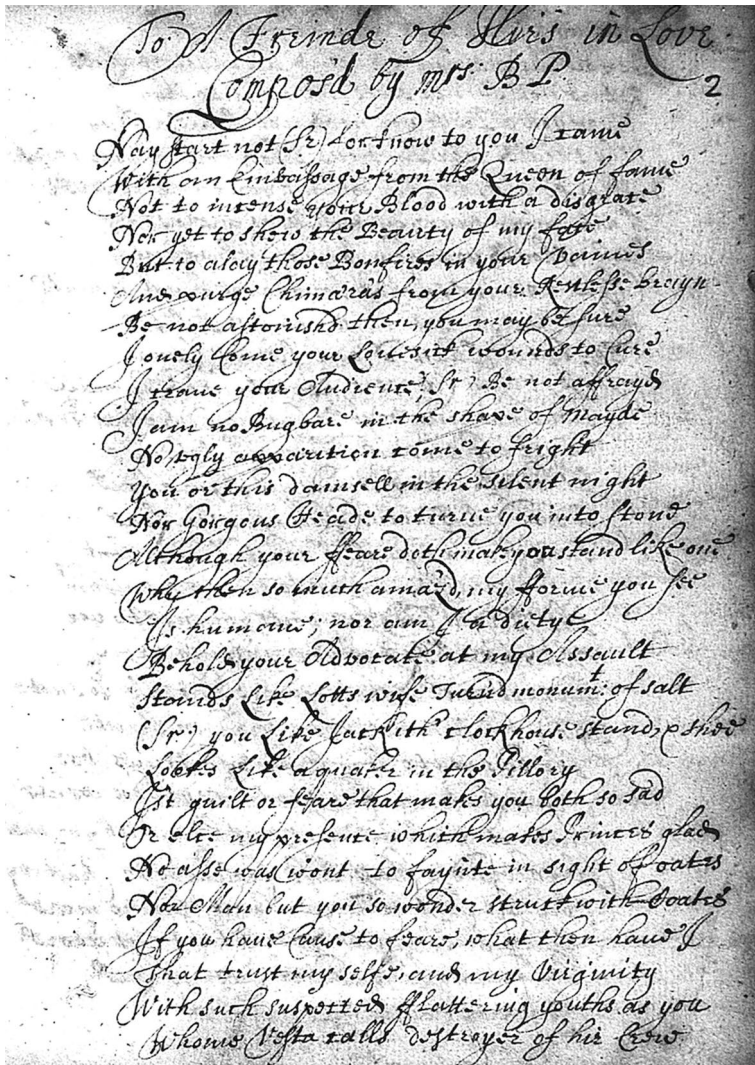 To A Freinde of Hirs in Love
Compos'd by mrs: B P.
2
Nay start not (Sr) for know to you I came
With an Embassage from the Queen of fame
Not to incense your Blood with a disgrace
Nor yet to shew the Beauty of my face
But to alay those Bonfires in your Vaines
And purge Chimæra's from your Restlesse brayn
Be not astonishd then, you may be sure
I onely Come your Lovesick wounds to Cure
I crave your Audience, Sr, Be not affrayd
I am no Bugbare in the shape of Mayde
No ugly apparition come to fright
You or this damsell in the silent night
Nor Gorgons Heade to turne you into stone
Although your ffeare doth make you stand like one
Why then so much amazd, my fforme you see
Is humane; nor am I a dietye
Behold your Advocate at my Assault
Stands Like Lotts wife Turnd monumt: of salt
(Sr) you Like Jack ith' clockhouse stand, & shee
Lookes Like a quaker in the Pillory
Ist guilt or feare that makes you both so sad
Or else my presence which makes Princes glad
No asse was wont to faynte in sight of oates
Nor Man but you so wonder struck with Coates
If you have Cause to feare, what then have I
That trust my selfe, and my Virginity
With such suspected fflattering youths as you
Whome Vesta calls destroyer of hir Crew